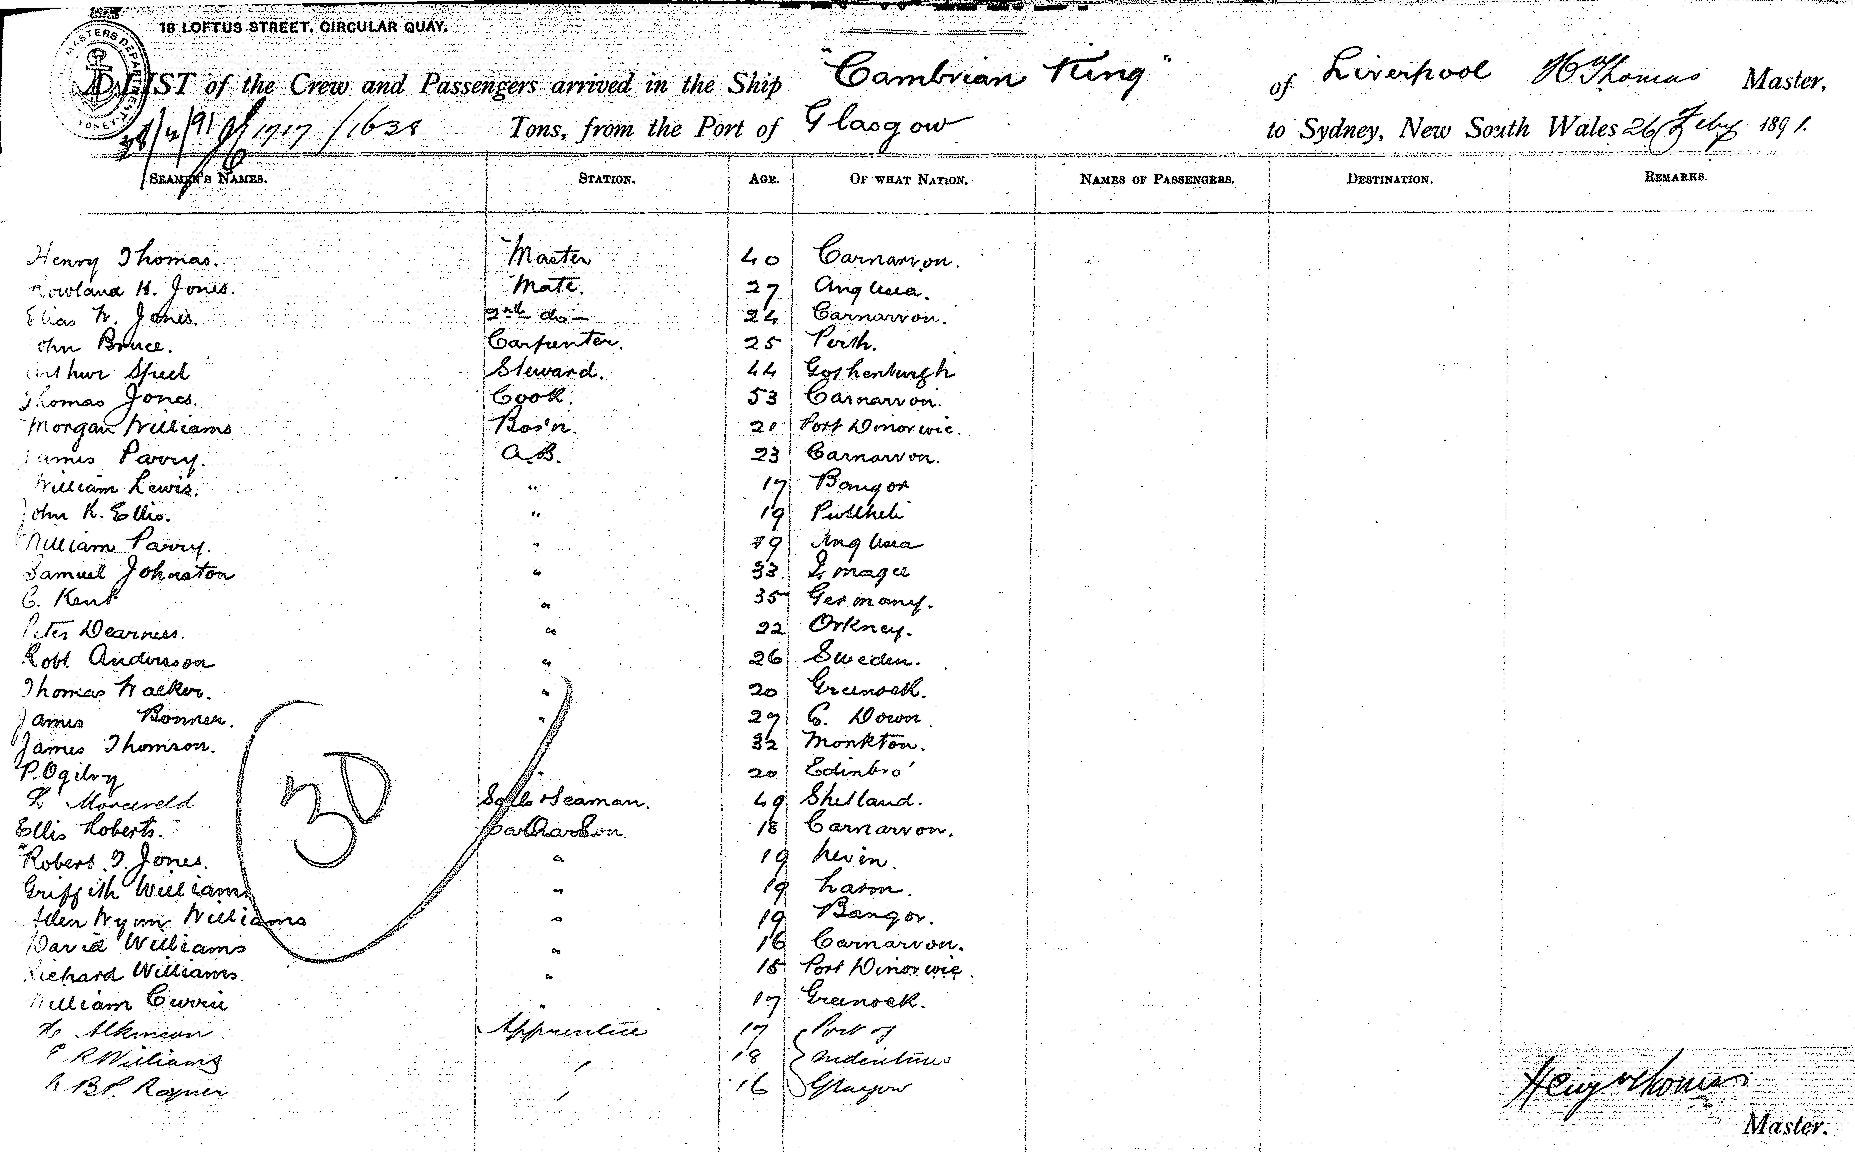 18 LOFTUS STREET, CIRCULAR QUAY.
MASTERS DEPARTMENT SYDNEY
A LIST of the Crew and Passengers arrived in the Ship "Cambrian King" of Liverpool H Thomas Master,
1717 / 1628 Tons, from the Port of Glasgow to Sydney, New South Wales 26 Feby 1891.
SEAMEN'S NAMES. STATION. AGE. OF WHAT NATION. NAMES OF PASSENGERS. DESTINATION. REMARKS.
Henry Thomas. Master 40 Carnarvon.
Rowland H. Jones. Mate. 27 Anglesea.
Elias W. Jones. 2nd do 24 Carnarvon.
John Bruce. Carpenter. 25 Perth.
Arthur Steward. 44 Gothenburgh
Thomas Jones. Cook. 53 Carnarvon.
Morgan Williams Bos'n. 21 Port Dinorwic.
James Parry. A.B. 23 Carnarvon.
William Lewis. " 17 Bangor
John R. Ellis. " 19 Pwllheli
William Parry. " 19 Anglesea
Samuel Johnston " 33 I. magee
C. Kent " 35 Germany.
Peter Dearness. " 22 Orkney.
Robt Anderson " 26 Sweden.
Thomas Walker. " 20 Greenock.
James Bonner. " 27 C. Down
James Thomson. 32 Monkton.
P. Ogilvy " 20 Edinbro'
Seaman. 49 Shetland.
Ellis Roberts. 18 Carnarvon.
Robert T. Jones. " 19 Nevin.
Griffith Williams " 19
Wynn Williams " 19 Bangor.
David Williams " 16 Carnarvon.
Richard Williams. " 18 Port Dinorwic.
William Currie " 17 Greenock.
H Atkinson Apprentice 17 Port of
R Williams " 18 indentures
B.P. " 16 Glasgow
30
Henry Thomas
Master.